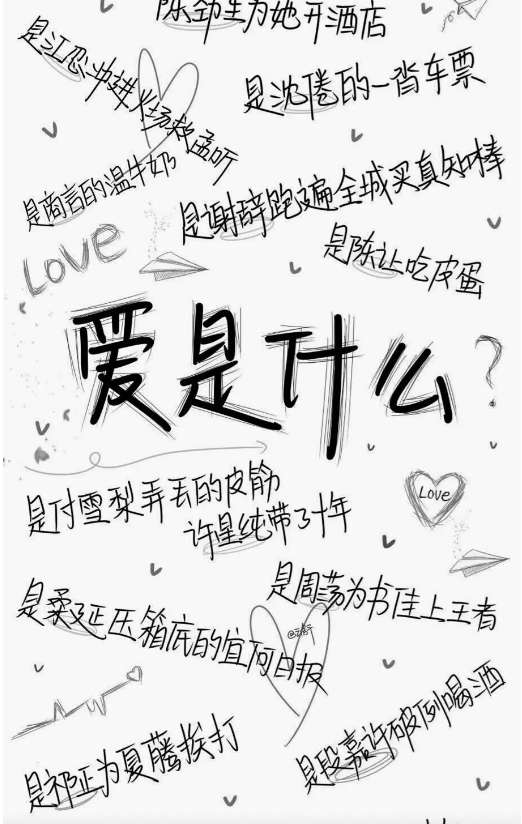 陈劲生为她开酒店
是江忍冲进火场救孟听
是沈倦的一沓车票
是商言的温牛奶
是谢辞跑遍全城买真知棒
LOVE
是陈让吃皮蛋
爱是什么?
是付雪梨弄丢的皮筋
许星纯带了十年
Love
是周荡为书佳上王者
是桑延压箱底的宜荷日报
是祁正为夏藤挨打
是段嘉许破例喝酒